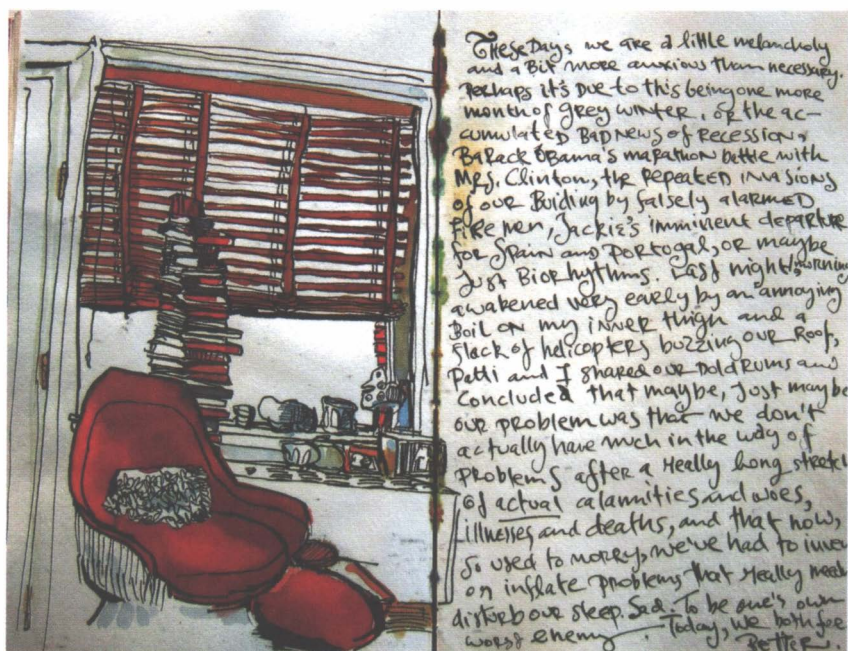 These Days we are a little melancholy
and a Bit more anxious than necessary.
Perhaps it's Due to this being one more
month of grey winter, or the ac-
cumulated BAD NEWS of Recession &
Barack Obama's marathon battle with
Mrs. Clinton, the Repeated invasions
of our Building by falsely alarmed
firemen, Jackie's imminent departure
for Spain and Portogal, or maybe
Just Biorhythms. Last night/morning
awakened very early by an annoying
Boil on my inner thigh and a
flack of helicopters buzzing our Roof,
Patti and I shared our Doldrums and
Concluded that maybe, Just maybe
our problem was that we don't
actually have much in the way of
Problems after a Really long stretch
of actual calamities and woes,
illnesses and deaths, and that now,
so used to worry, we've had to inven
or inflate problems that Really need
disturb our sleep. Sad. To be one's own
worst enemy. Today, we both fee
Better.